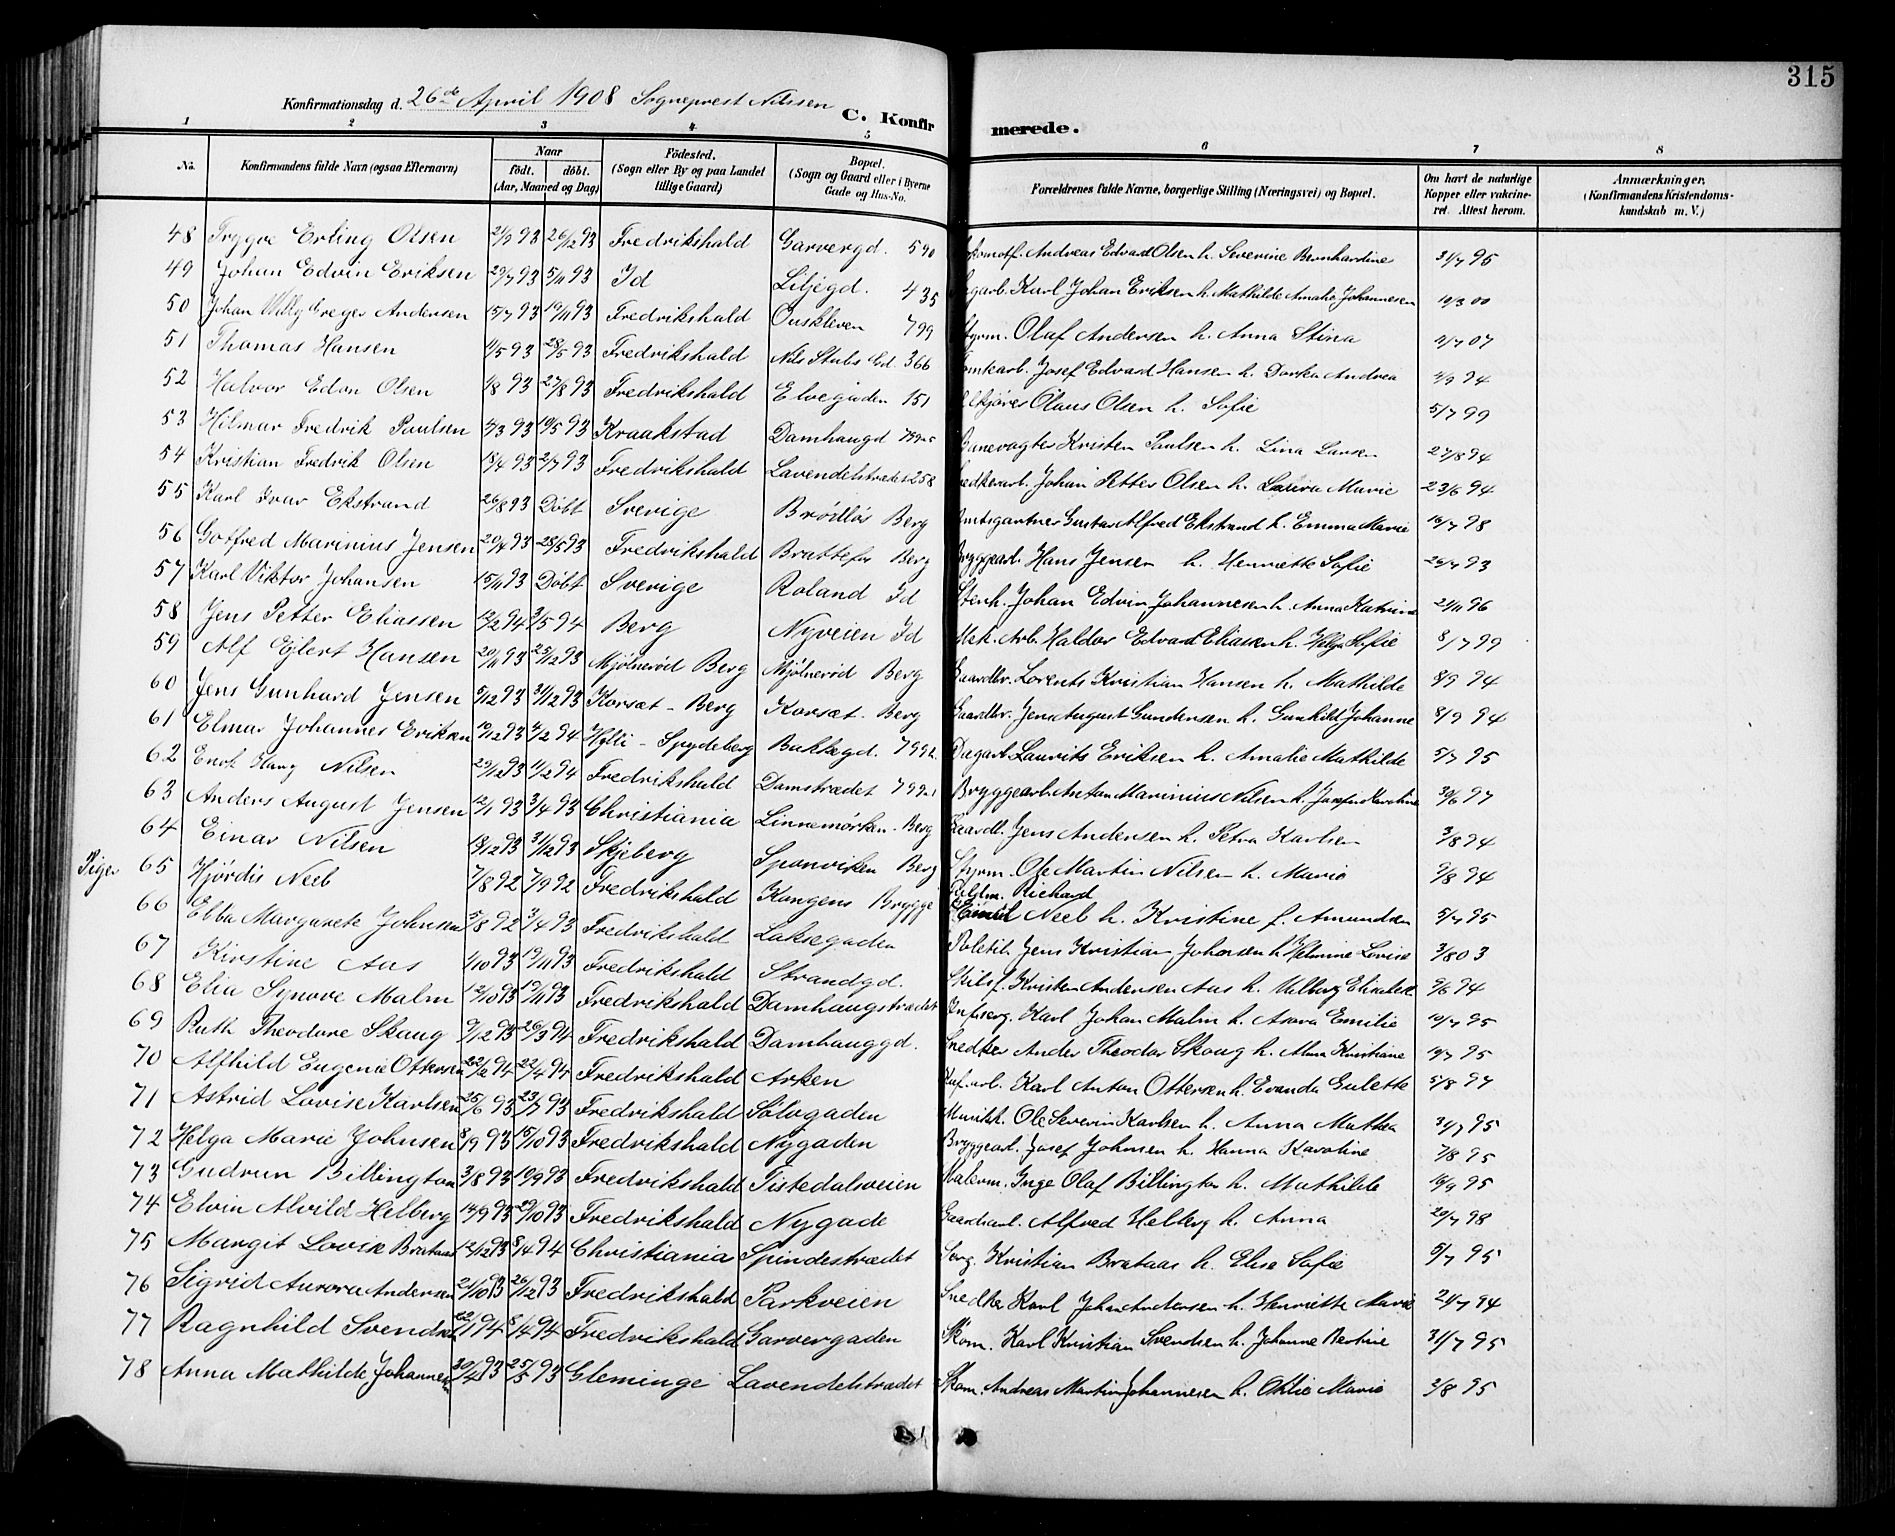 315
Konfirmationsdag d. 26de April 1908 Sogneprest Nilssen
C. Konfirmerede.
1 2 3 4 5 6 7 8
No. Konfirmandens fulde Navn (ogsaa Efternavn) Naar født. døbt. (Aar, Maaned og Dag) Fødested. (Sogn eller By og paa Landet tillige Gaard) Bopæl. (Sogn og Gaard eller i Byerne Gade og Hus-No. Forældrenes fulde Navne, borgerlige Stilling (Næringsvei) og Bopæl. Om havt de naturlige Kopper eller vakcineret. Attest herom. Anmærkninger. (Konfirmandens Kristendomskundskab m. V.)
48 Trygve Erling Olsen 21/9 93 26/12 93 Fredrikshald Garvergd. 590 Andreas Edvard Olsen h. Severine Bernhardine 31/7 95
49 Johan Edvin Eriksen 29/7 93 5/11 93 Id Liljegd. 435 Karl Johan Eriksen h. Mathilde Amalie Johannesen 10/3 00
50 Johan Willy Greger Andersen 15/7 93 19/11 93 Fredrikshald Ouskleven 799 Styrm. Olaf Andersen h. Anna Stina 9/7 07
51 Thomas Hansen 4/5 93 28/5 93 Fredrikshald Nils Stubs Gd. 366 Josef Edvard Hansen h. Dorka Andrea 4/9 94
52 Halvor Edon Olsen 1/8 93 27/8 93 Fredrikshald Elvegaden 151 Olaus Olsen h. Sofie 5/7 99
53 Hilmar Fredrik Paulsen 4/3 93 19/5 93 Kraakstad Damhaugd Banevogter Kristen Paulsen h. Lina Larsen 27/8 94
54 Kristian Fredrik Olsen 18/4 93 2/7 93 Fredrikshald Lavendelstrædet 258 Snedkerarb. Johan Petter Olsen h. Lovisa Marie 23/6 94
55 Karl Ivar Ekstrand 26/8 93 Døbt Sverige Brødløs Berg Amtsgartner Gustav Alfred Ekstrand h. Emma Marie 16/7 98
56 Gotfred Marinius Jensen 20/4 93 28/5 93 Fredrikshald Brattefos Berg Bryggearb. Hans Jensen h. Henriette Sofie 26/7 93
57 Karl Viktor Johansen 15/11 93 Døbt Sverige Roland Id Stenh. Johan Edvin Johannesen h. Anna Katrine 21/11 96
58 Jens Petter Eliassen 12/2 94 3/5 94 Berg Nyveien Id Mek. Arb. Haldor Edvard Eliassen h. Helga Sofie 8/7 99
59 Alf Ejlert Hansen 20/11 93 25/12 93 Mjølnerød Berg Mjølnerød Berg Gaardbr. Lorents Kristian Hansen h. Mathilde 8/9 94
60 Jens Gunhard Jensen 5/12 93 31/12 93 Korsæt - Berg Korsæt - Berg Gaardbr. Jens August Gundersen h. Gunhild Johanne 8/9 94
61 Elmar Johannes Eriksen 10/12 93 4/2 94 Hylli - Spydeberg Bakkegd. Dagarb. Laurits Eriksen h. Amalie Mathilde 5/7 95
62 Enok Haug Nilsen 29/12 93 11/2 94 Fredrikshald Damstrædet Bryggearb. Anton Marinius Nilsen h. Josefine Karoline 30/6 97
63 Anders August Jensen 12/1 93 3/4 93 Christiania Linnemørken - Berg Gaardb. Jens Andersen h. Petra Karlsen 3/8 94
64 Einar Nilsen 13/12 93 31/12 93 Skjeberg Sponviken Berg Styrm. Ole Martin Nilsen h. Marie 9/8 94
Piger 65 Hjørdis Neeb 7/8 92 7/9 92 Fredrikshald Kongens Brygge Richard Neeb h. Kristine f. Amundsen 5/7 95
66 Ebba Margarete Johnsen 5/8 92 3/4 93 Fredrikshald Laksegaden Politib. Jens Kristian Johansen h. Helmine Lovise 3/8 03
67 Kirstine Aas 1/10 93 19/11 93 Fredrikshald Strandgd. Skibsf. Kristen Andersen Aas h. Elisabeth 9/6 94
68 Elia Synøve Malm 12/10 93 19/11 93 Fredrikshald Damhaugstrædet Karl Johan Malm h. Asora Emilie 10/7 95
69 Ruth Theodore Skaug 9/12 93 26/3 94 Fredrikshald Damhauggd. Snedker Anders Theodor Skoug h. Alma Kristiane 19/7 95
70 Alfhild Eugenie Ottersen 22/2 94 22/4 94 Fredrikshald Arken Karl Anton Ottersen h. Evanda Gulette 5/8 97
71 Astrid Lovise Karlsen 25/6 93 23/7 93 Fredrikshald Sølvgaden Ole Severin Karlsen h. Anna Mathea 31/7 95
72 Helga Marie Johnsen 8/9 93 15/10 93 Fredrikshald Nygaden Bryggearb. Josef Johnsen h. Hanna Karoline 7/8 95
73 Gudrun Billington 3/8 93 10/9 93 Fredrikshald Tistedalsveien Malerm. Inge Olaf Billington h. Mathilde 16/9 95
74 Elvin Alvild Helberg 14/9 93 29/10 93 Fredrikshald Nygade Alfred Helberg h. Anna 20/7 98
75 Margit Lovise Brataas 12/12 93 8/4 94 Christiania Spindestrædet Serg. Kristian Brataas h. Elise Sofie 5/7 95
76 Sigrid Aurora Andersen 21/10 93 26/12 93 Fredrikshald Parkveien Snedker Karl Johan Andersen h. Henriette Marie 21/7 94
77 Ragnhild Svendsen 22/1 94 8/4 94 Fredrikshald Garvergaden Skom. Karl Kristian Svendsen h. Johanne Bertine 31/7 95
78 Anna Mathilde Johannesen 30/4 93 25/5 93 Gleminge Lavendelstrædet Skom. Andreas Martin Johannesen h. Otilie Marie 2/8 95